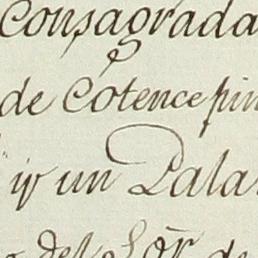 Consagrada
de Cotence pin
y un Pala
del Sõr de